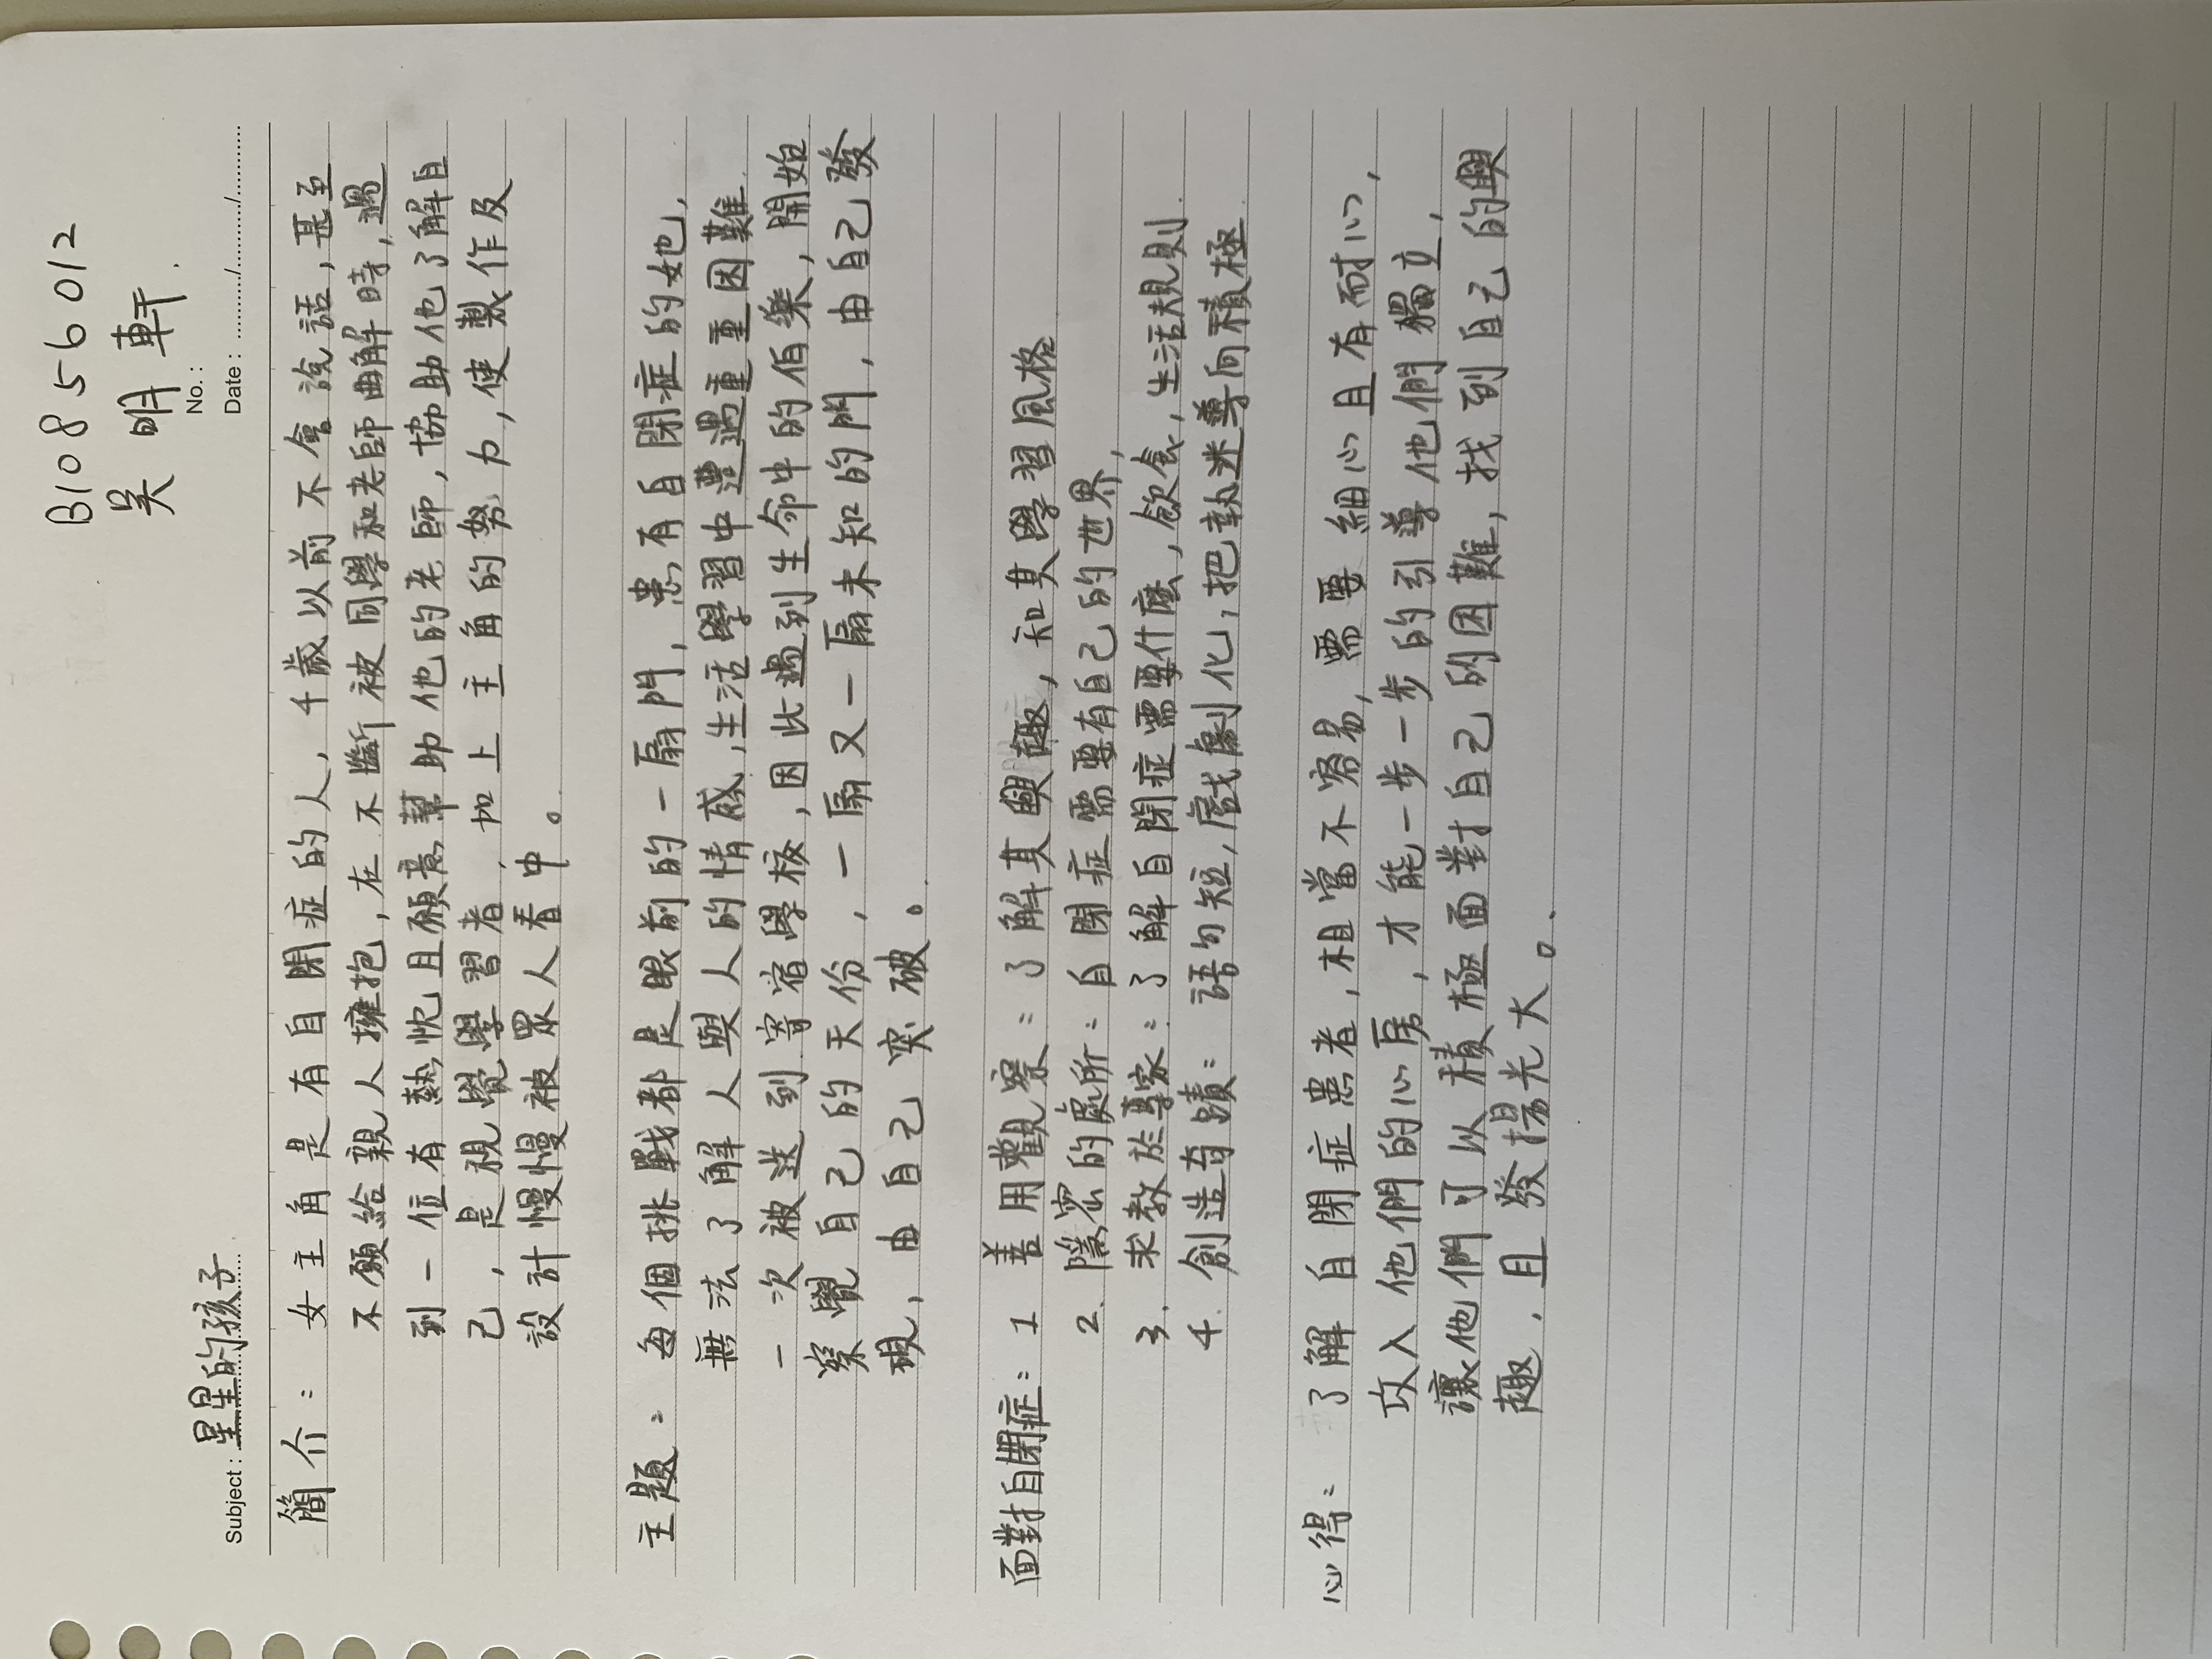 B10856012
吳明軒.
No. :
Subject : 星星的孩子
Date : ........../........../...........
簡介: 女主角是有自閉症的人, 4歲以前不會說話, 甚至
不願給親人擁抱, 在不斷被同學和老師曲解時, 遇
到一位有熱忱且願意幫助他的老師, 協助他了解自
己, 是視覺學習者, 加上主角的努力, 使製作及
設計慢慢被眾人看中。
主題: 每個挑戰都是眼前的一扇門, 患有自閉症的她,
無法了解人與人的情感, 生活學習中遭遇重重困難.
一次被送到寄宿學校, 因此遇到生命中的伯樂, 開始
察覺自己的天份, 一扇又一扇未知的門, 由自己發
現, 由自己突破。
面對自閉症: 1 善用觀察: 了解其興趣, 和其學習風格
2. 隱密的處所: 自閉症需要有自己的世界,
3. 求教於專家: 了解自閉症需要什麼, 飲食, 生活規則.
4. 創造奇蹟: 語句短, 戲劇化, 把執迷導向積極.
心得: 了解自閉症患者, 相當不容易, 需要細心且有耐心,
攻入他們的心房, 才能一步一步的引導他們獨立,
讓他們可以積極面對自己的困難, 找到自己的興
趣, 且發揚光大。.